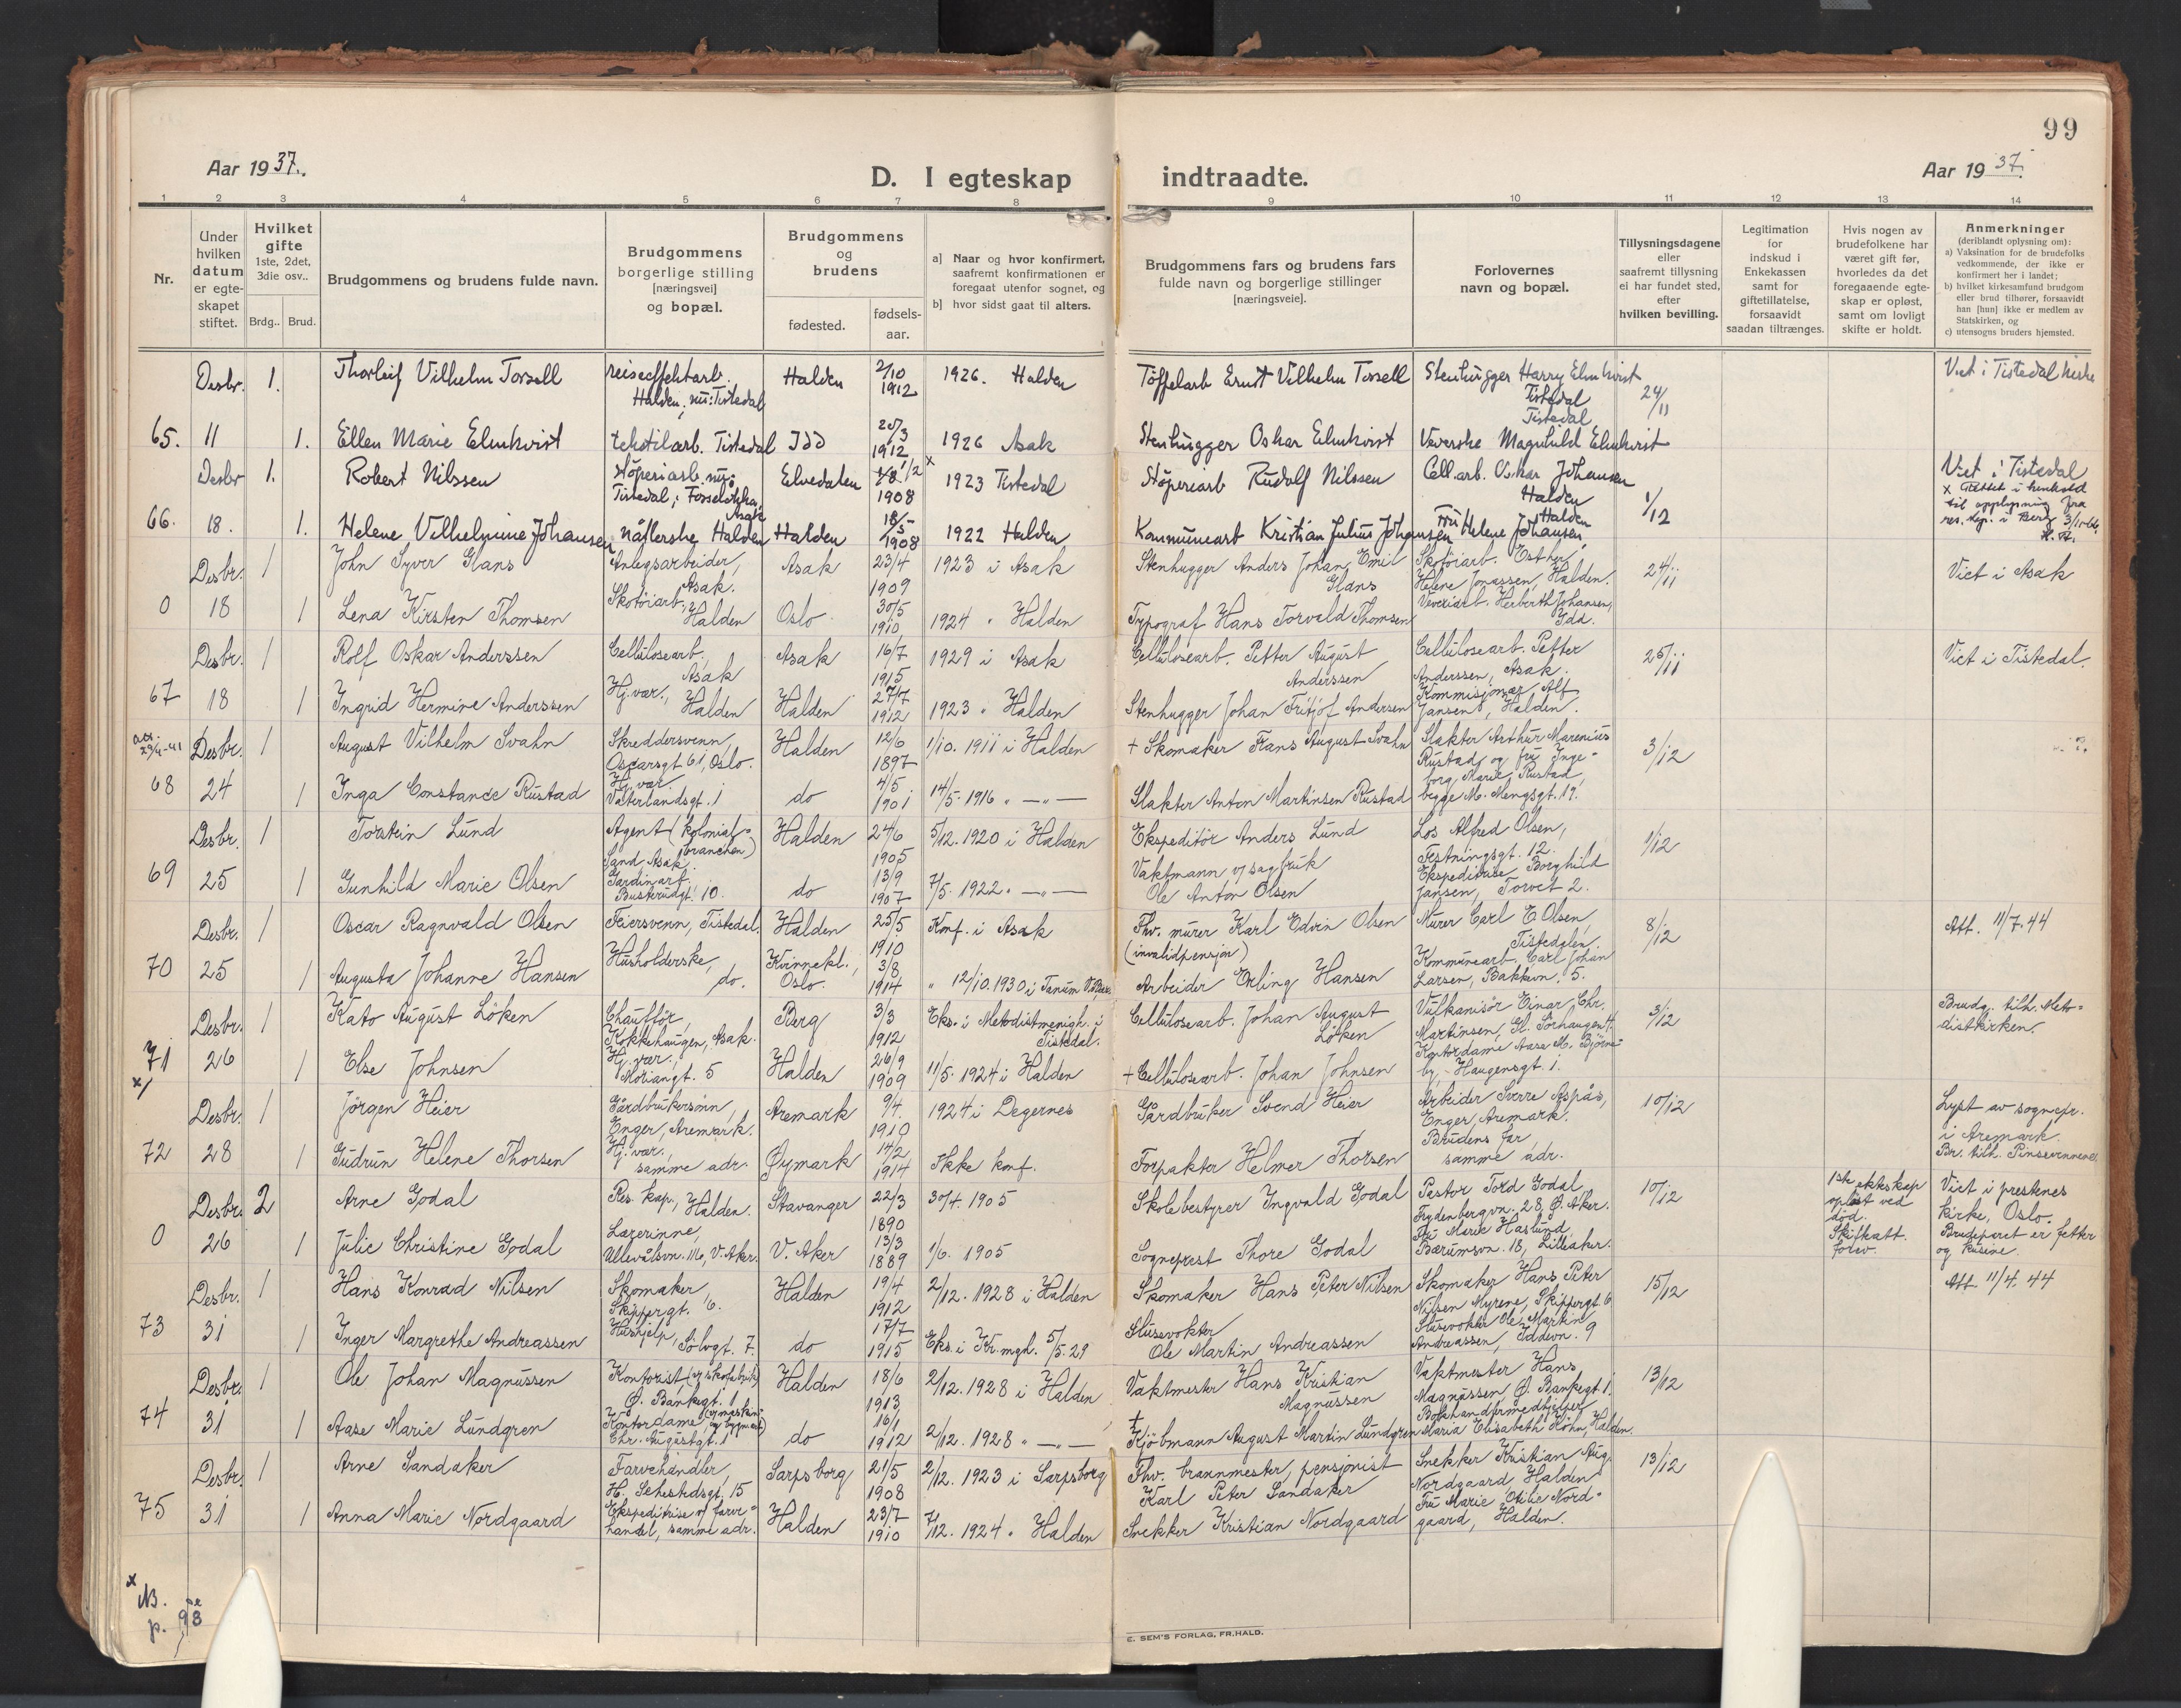 99
Aar 19 37.
D. I egteskap indtraadte.
Aar 19 37.
1 2 3 4 5 6 7 8 9 10 11 12 13 14
Nr.
Under hvilken datum er egteskapet stiftet.
Hvilket gifte 1ste, 2det, 3die osv..
Brdg.. Brud.
Brudgommens og brudens fulde navn.
Brudgommens borgerlige stilling [næringsvei] og bopæl.
Brudgommens og brudens
fødested.
fødselsaar.
a] Naar og hvor konfirmert, saafremt konfirmationen er foregaat utenfor sognet, og
b] hvor sidst gaat til alters.
Brudgommens fars og brudens fars fulde navn og borgerlige stillinger [næringsveie].
Forlovernes navn og bopæl.
Tillysningsdagene eller saafremt tillysning ei har fundet sted, efter hvilken bevilling.
Legitimation for indskud i Enkekassen samt for giftetillatelse, forsaavidt saadan tiltrænges.
Hvis nogen av brudefolkene har været gift før, hvorledes da det foregaaende egteskap er opløst, samt om lovligt skifte er holdt.
Anmerkninger (deriblandt oplysning om):
a) Vaksination for de brudefolks vedkommende, der ikke er konfirmert her i landet;
b) hvilket kirkesamfund brudgom eller brud tilhører, forsaavidt han [hun] ikke er medlem av Statskirken, og
c) utensogns bruders hjemsted.
Desbr. 1. Thorleif Vilhelm Torsell reiseeffektarb. Halden; nu: Tistedal Halden 2/10 1912 1926. Halden Töffelarb Ernst Vilhelm Torsell Stenhugger Harry Elmkvist Tistedal 24/11 Viet i Tistedal kirke
65. 11 1. Ellen Marie Elmkvist tekstilarb. Tistedal Idd 25/3 1912 1926 Asak Stenhugger Oskar Elmkvist Veverske Magnhild Elmkvist Tistedal
Desbr 1. Robert Nilssen Stöperiarb. nu: Tistedal; Fosseløkka, Asak Elvedalen 1908 x 1923 Tistedal Stöperiarb Rudolf Nilssen Cell.arb. Oskar Johansen Halden 1/12 Viet i Tistedal
x Rettet i henhold til opplysning fra res. kap. i Berg 3/11-66. H.A.
66. 18. 1. Helene Vilhelmine Johansen nåtlerske Halden Halden 18/5 1908 1922 Halden Kommunearb Kristian Julius Johansen Fru Helene Johansen, Halden
Desbr. 1 John Syver Glans Anlegsarbeider, Asak. Asak 23/4 1909 1923 i Asak Stenhugger Anders Johan Emil Glans Skotöiarb. Esther Helene Jonassen, Halden. 24/11 Viet i Asak
0 18 1 Lena Kirsten Thomsen Skotöiarb., Halden Oslo 30/5 1910 1924 " Halden Typograf Hans Torvald Thomsen Veveriarb. Herberth Johansen, Idd.
Desbr. 1 Rolf Oskar Anderssen Cellulosearb., Asak Asak 16/7 1915 1929 i Asak Cellulosearb. Petter August Anderssen Cellulosearb. Petter Anderssen, Asak. 25/11 Viet i Tistedal.
67 18 1 Ingrid Hermine Anderssen Hj. vær., Halden Halden 27/7 1912 1923 " Halden Stenhugger Johan Fritjof Andersen Kommisjonær Alf Jansen, Halden.
att. 29/4-41 Desbr. 1 August Vilhelm Svahn Skreddersvenn, Oscarsgt 61, Oslo. Halden 12/6 1897 1/10. 1911 i Halden + Skomaker Frans August Svahn Slakter Arthur Marenius Rustad og fru Ingeborg Marie Rustad, begge M. Mengsgt. 19. 3/12
68 24 1 Inga Constance Rustad Hj. vær. Vaterlandsgt. 1 do 4/5 1901 14/5. 1916 " —"— Slakter Anton Martinsen Rustad
Desbr. 1 Torstein Lund Agent (kolonialbranchen) Sand, Asak. Halden 24/6 1905 5/12. 1920 i Halden Ekspeditör Anders Lund Los Alfred Olsen, Festningsgt. 12. 1/12
69 25 1 Gunhild Marie Olsen Gardinarb. Buskerudgt. 10. do 13/9 1907 7/5. 1922. —"— Vaktmann v/ sagbruk Ole Anton Olsen Ekspeditrise Borghild Jansen, Torvet 2.
Desbr. 1 Oscar Ragnvald Olsen Feiersvenn, Tistedal. Halden 25/5 1910 Konf. i Asak Fhv. murer Karl Edvin Olsen (invalidpensjon) Murer Carl E. Olsen, Tistedalen. 8/12 Att. 11/7.44
70 25 1 Augusta Johanne Hansen Husholderske, do. Kvinnekl., Oslo. 3/8 1914 " 12/10. 1930 i Tanum Arbeider Erling Hansen Kommunearb. Carl Johan Larsen, Bakkevn. 5.
Desbr. 1 Kato August Löken Chaufför, Kokkehaugen, Asak. Berg 3/3 1912 Eks. i Metodistmenigh. i Tistedal. Cellulosearb. Johan August Löken Vulkanisör Einar Chr. Martinsen, Gl. Sörhaugen 4. 3/12 Brudg. tilh. Metodistkirken.
71 x) 26 1 Else Johnsen Hj. vær., Voldriangt. 5 Halden 26/9 1909 11/5. 1924 i Halden + Cellulosearb. Johan Johnsen Kontordame Aase M. Björneby, Haugensgt. 1.
Desbr. 1 Jörgen Heier Gårdbrukersönn, Enger, Aremark. Aremark 9/4. 1910 1924 i Degernes Gårdbruker Svend Heier Arbeider Sverre Aspås, Enger, Aremark. 10/12 Lyst av sognepr. i Aremark.
72 28 1 Gudrun Helene Thorsen Hj. vær., samme adr. Øymark 14/2 1914 Ikke konf. Forpakter Helmer Thorsen Brudens far, samme adr. Br. tilh. Pinsevennene
Desbr. 2 Arne Godal Res. kap., Halden. Stavanger 22/3 1890 30/4. 1905 Skolebestyrer Ingvald Godal Pastor Tord Godal, Frydenbergvn. 28, Ø. Aker. 10/12 1ste ekteskap opløst ved død. Skifteatt. forev. Viet i prestenes kirke, Oslo. Brudeparet er fetter og kusine.
0 26 1 Julie Christine Godal Lærerinne, Ullevålsvn. 116, V. Aker. V. Aker 13/3 1889 1/6. 1905 Sogneprest Thore Godal Fru Marie Haslund, Bærumsvn. 18, Lilleaker.
Desbr. 1 Hans Konrad Nilsen Skomaker, Skippergt. 6. Halden 19/4 1912 2/12. 1928 i Halden Skomaker Hans Peter Nilsen Skomaker Hans Peter Nilsen Myrene, Skippergt. 6 15/12 Att. 11/4. 44
73 31 1 Inger Margrethe Andreassen Hushjelp, Sölvgt. 7. do 17/7 1915 Eks. i Kr.mgh. 5/5. 29 Slusevokter Ole Martin Andreassen Slusevokter Ole Martin Andreassen, Iddevn. 9
Desbr. 1 Ole Johan Magnussen Kontorist (v/ skofabrikk) Ø. Bankegt. 1 Halden 18/6 1913 2/12. 1928 i Halden Vaktmester Hans Kristian Magnussen Vaktmester Hans Magnussen, Ø. Bankegt 1. 13/12
74 31 1 Aase Marie Lundgren Kontordame Chr. Augustgt. 1 do 16/1 1912 2/12. 1928 " —"— + Kjöbmann August Martin Lundgren Bokhandlermedhjelper Maria Elisabeth Höhn, Halden.
Desbr. 1 Arne Sandaker Farvehandler, H. Sehestedsgt. 15 Sarpsborg 21/5 1908 2/12. 1923 i Sarpsborg Fhv. brannmester, pensjonist Karl Peter Sandaker Snekker Kristian Aug. Nordgaard, Halden 13/12
75 31 1 Anna Marie Nordgaard Ekspeditrise v/ farvehandel, samme adr. Halden 23/7 1910 7/12. 1924. Halden Snekker Kristian Nordgaard Fru Marie Otilie Nordgaard, Halden.
x NB. p. 98
E. SEM'S FORLAG, FR.HALD.